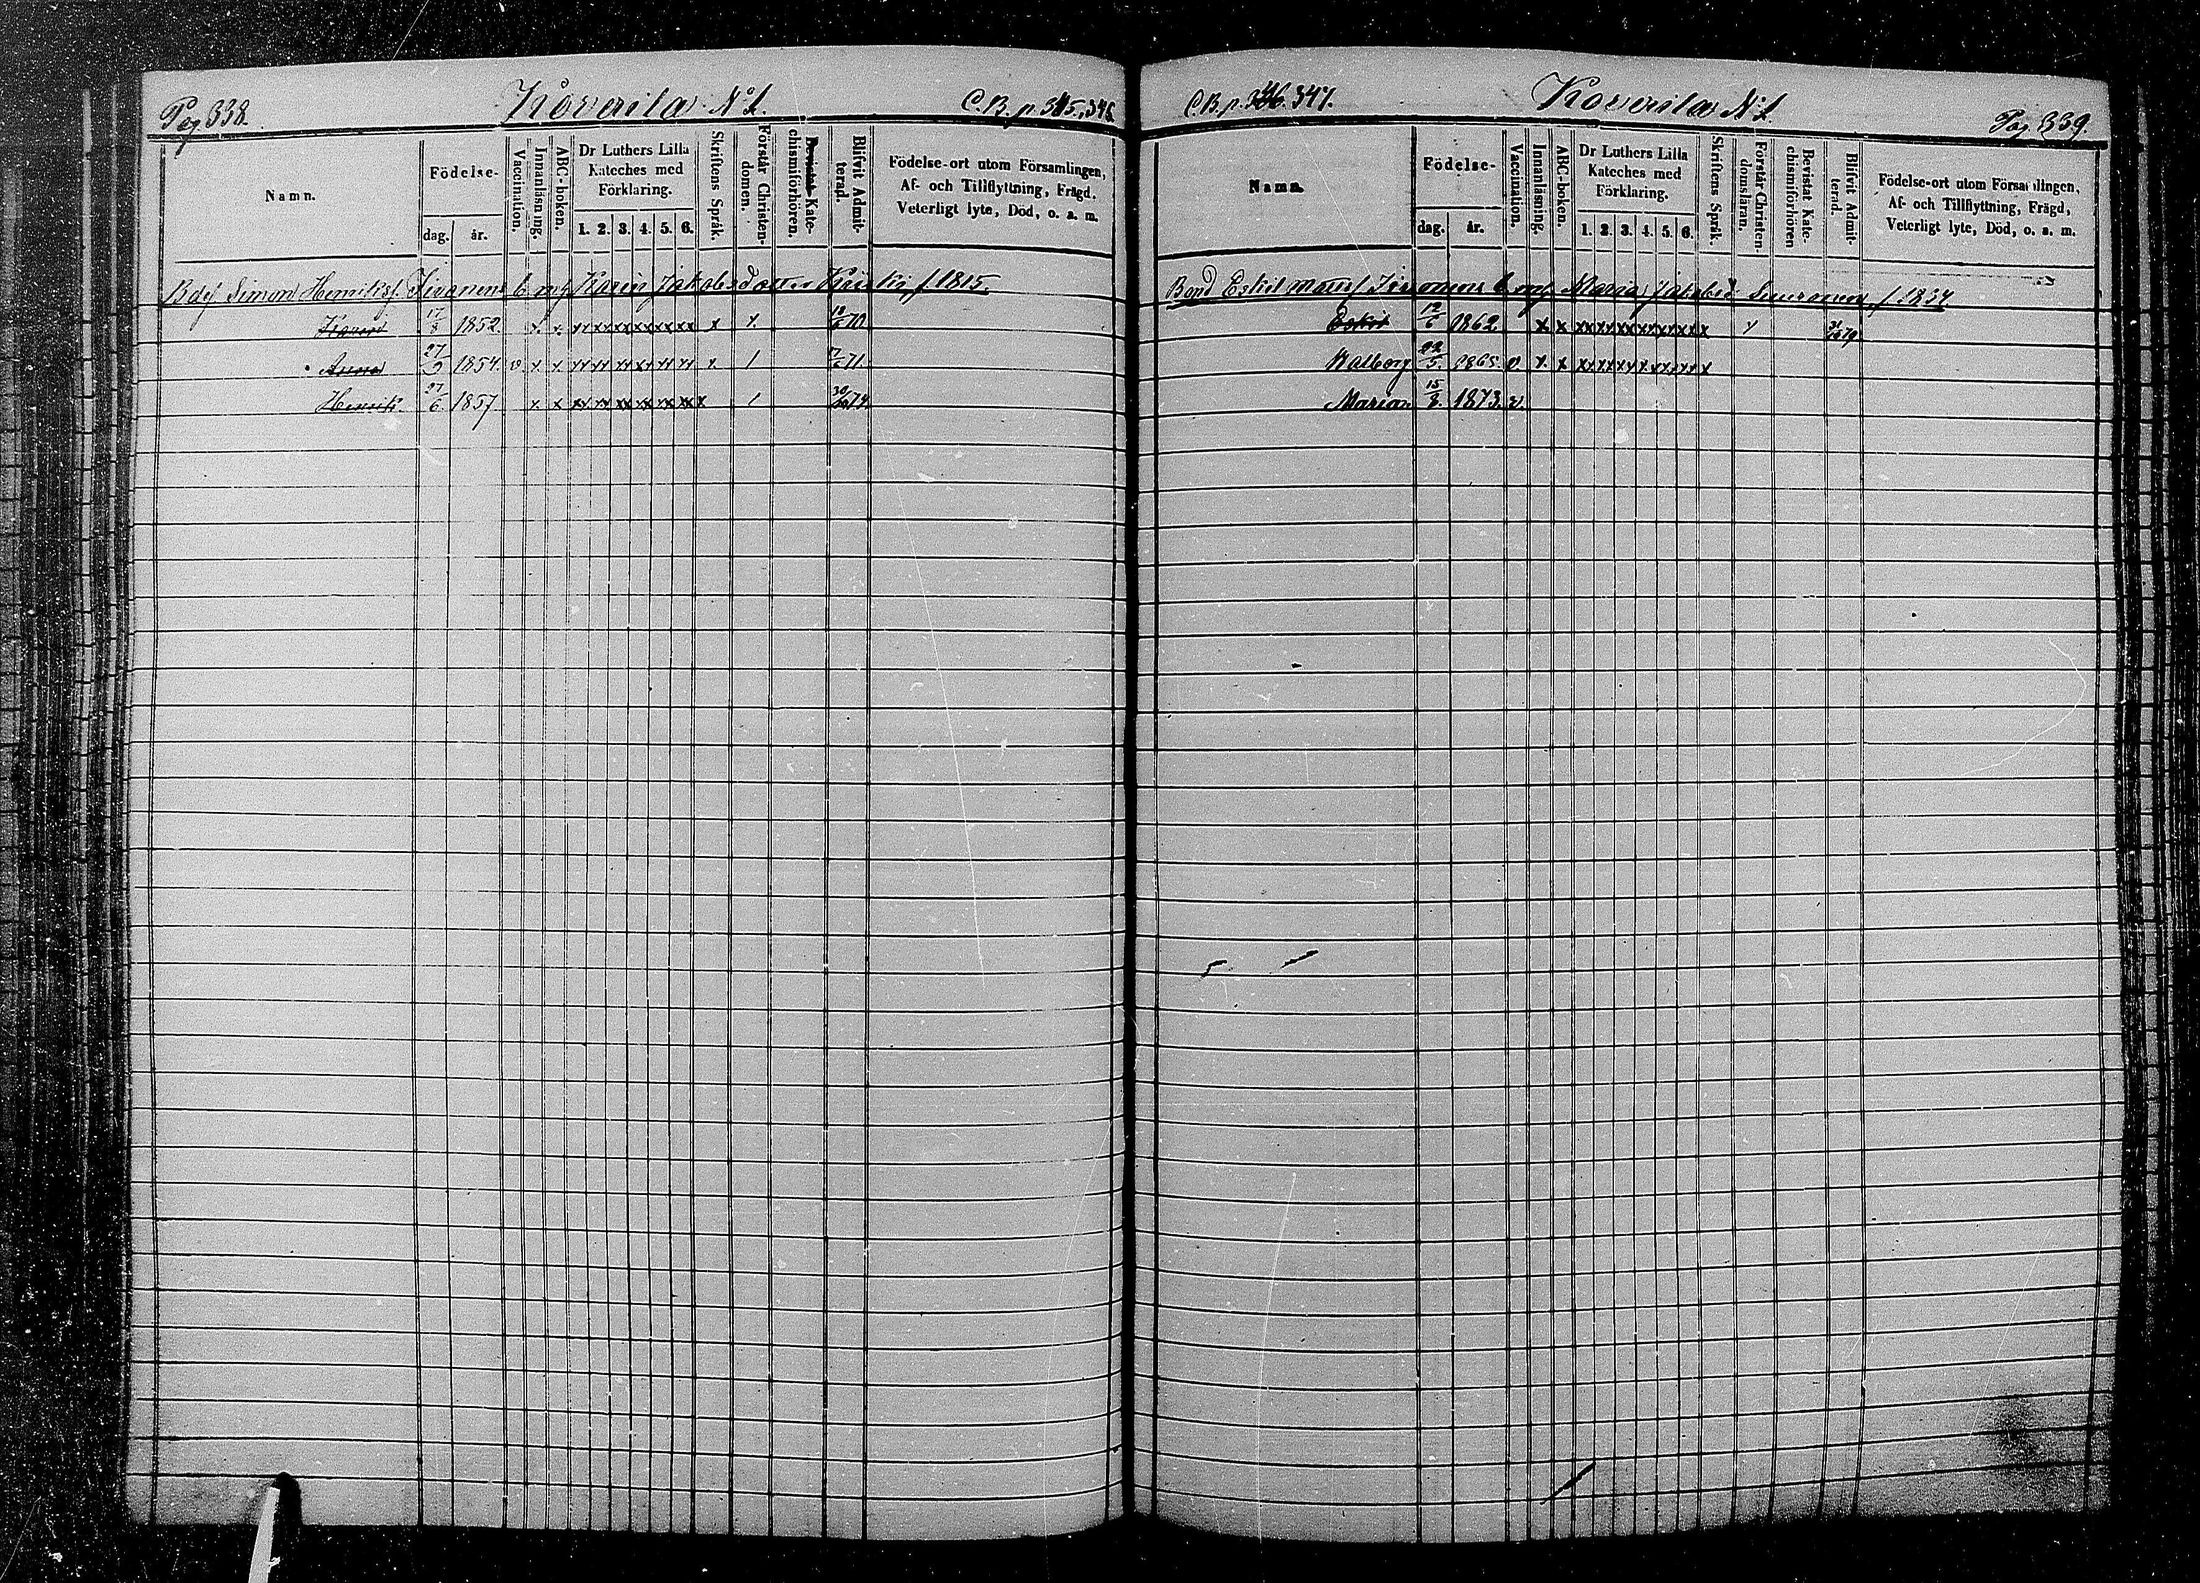 Pag 338.
Koverila № 1.
C.B. p. 345, 346
Namn.
Födelse-
dag.
år.
Vaccination.
Innanläsning.
ABC-boken.
Dr Luthers Lilla
Kateches med
Förklaring.
1. 2. 3. 4. 5. 6.
Skriftens Språk.
Förstår Christen-
domen.
Bevistat Kate-
chismiförhören.
Blifvit Admit-
terad.
Födelse-ort utom Församlingen,
Af- och Tillflyttning, Frägd,
Veterligt lyte, Död, o. a. m.
Simon Henriks. Karin Jakobsdotter f 1815.
17/8 1852 x x xx xx xx xx xx xx x x 70
Anna 27/9 1854 v x x xx xx xx xx xx xx x 1 71.
Henrik 27/6 1857 x x xx xx xx xx xx xx x 1 74
C.B. p. 346. 347.
Koverila № 1
Pag 339.
Namn.
Födelse-
dag.
år.
Vaccination.
Innanläsning.
ABC-boken.
Dr Luthers Lilla
Kateches med
Förklaring.
1. 2. 3. 4. 5. 6.
Skriftens Språk.
Förstår Christen-
domsläran.
Bevistat Kate-
chismiförhören
Blifvit Admit-
terad.
Födelse-ort utom Församlingen,
Af- och Tillflyttning, Frägd,
Veterligt lyte, Död, o. a. m.
Bond Eskil Maria Jakobsd f. 1834
Eskil 12/6 1862 x x xx xx xx xx xx xx x 79
Walborg 22/5 1865 v x x xx xx xx xx xx xx x
Maria 15/8 1873. v.